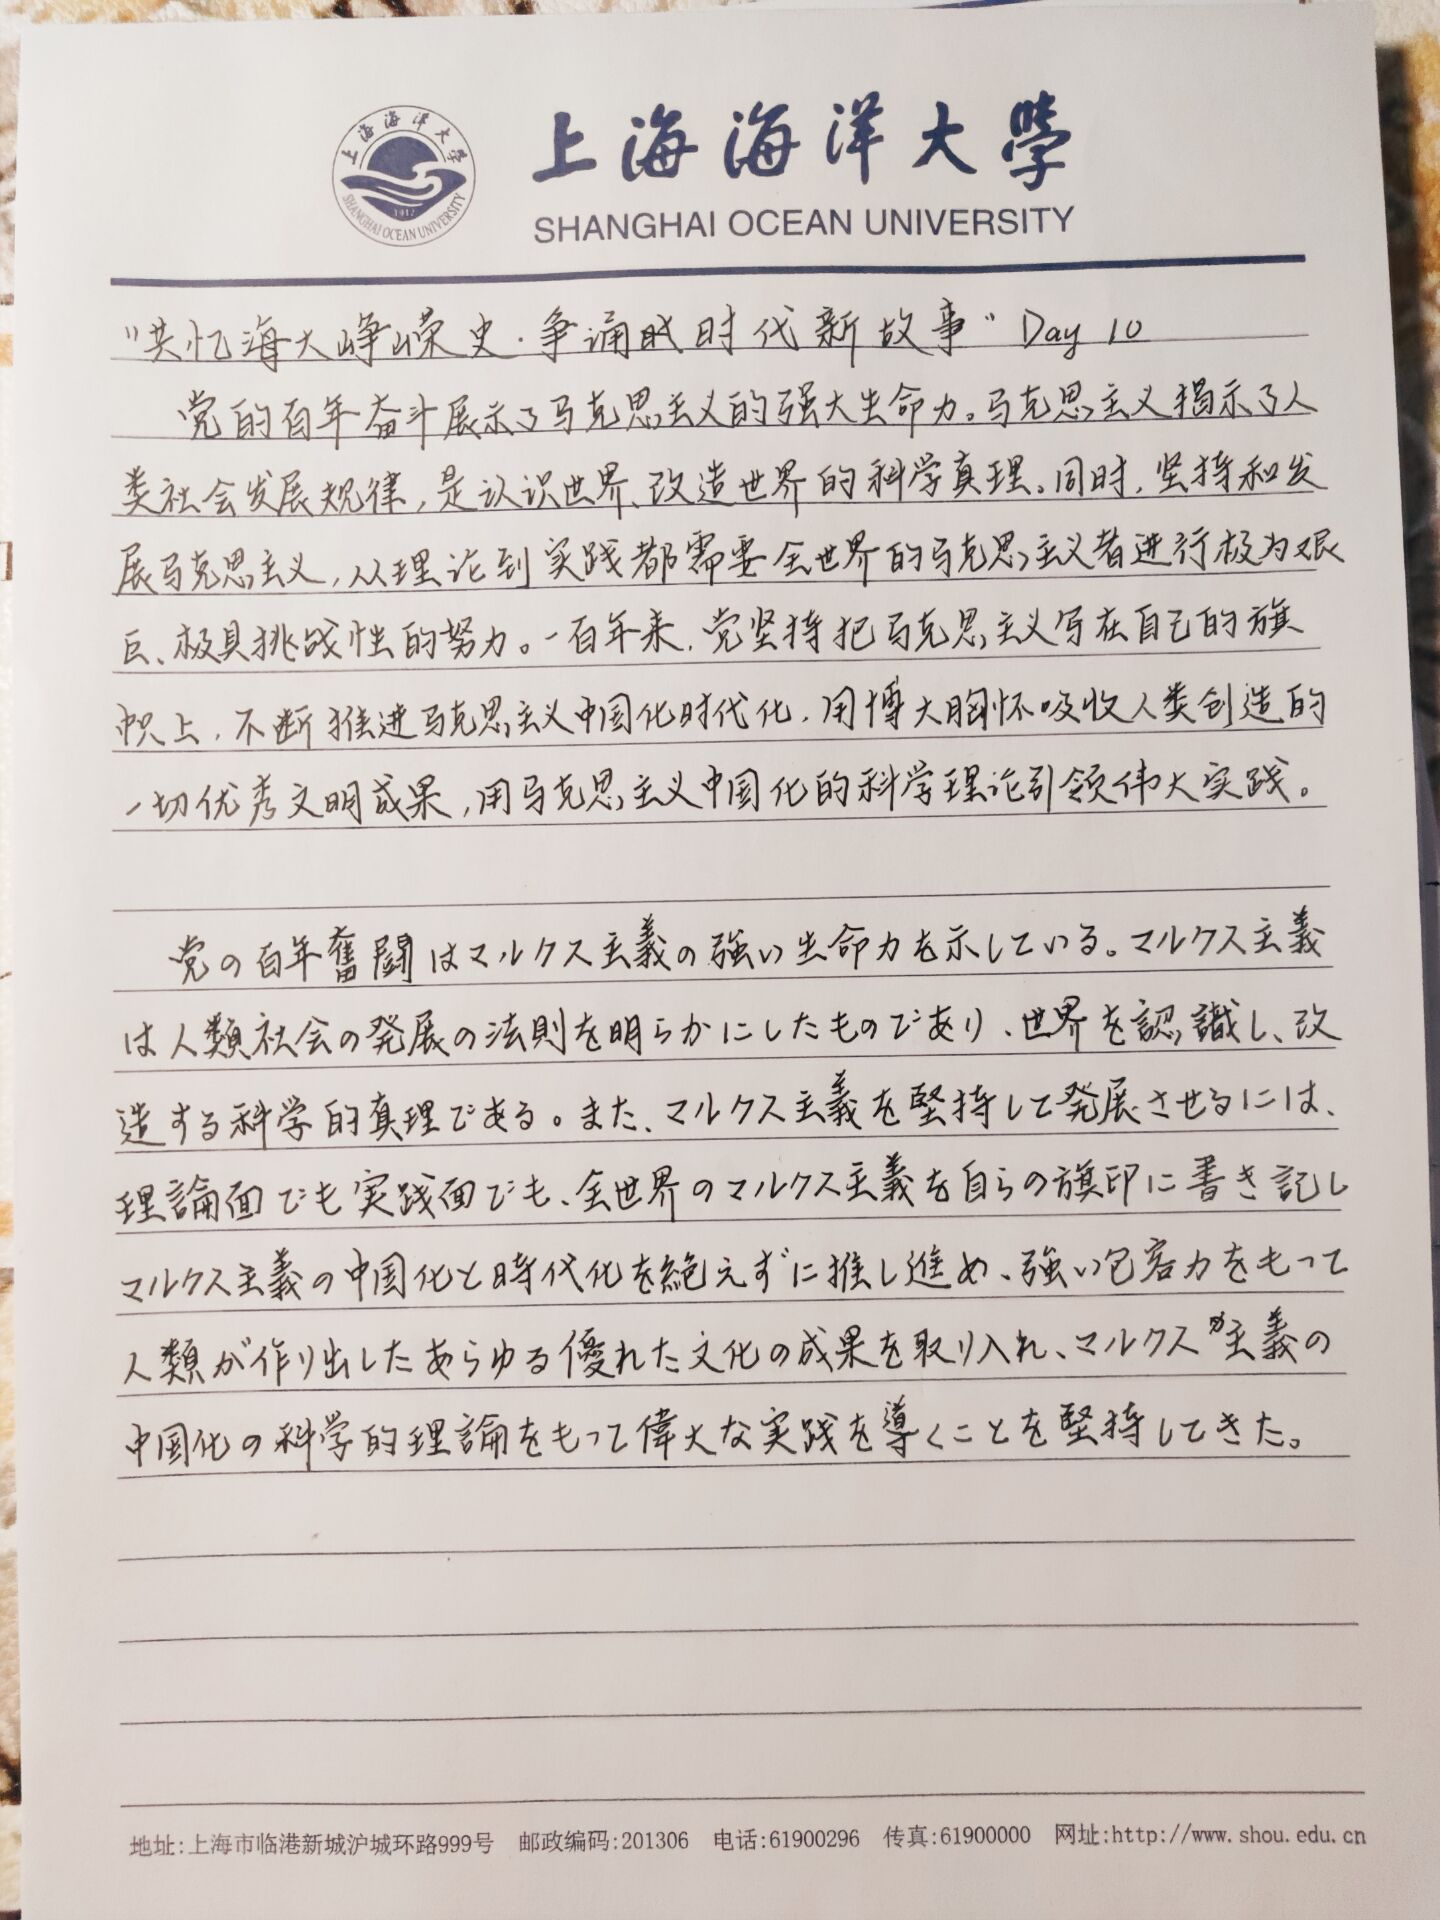 上海海洋大学
SHANGHAI OCEAN UNIVERSITY
1912
上海海洋大學
SHANGHAI OCEAN UNIVERSITY
"共忆海大峥嵘史·争诵时代新故事" Day 10
党的百年奋斗展示了马克思主义的强大生命力。马克思主义揭示了人
类社会发展规律，是认识世界、改造世界的科学真理。同时，坚持和发
展马克思主义，从理论到实践都需要全世界的马克思主义者进行极为艰
巨、极具挑战性的努力。一百年来，党坚持把马克思主义写在自己的旗
帜上，不断推进马克思主义中国化时代化，用博大胸怀吸收人类创造的
一切优秀文明成果，用马克思主义中国化的科学理论引领伟大实践。
党の百年奮闘はマルクス主義の強い生命力を示している。マルクス主義
は人類社会の発展の法則を明らかにしたものであり、世界を認識し、改
造する科学的真理である。また、マルクス主義を堅持して発展させるには、
理論面でも実践面でも、全世界のマルクス主義を自らの旗印に書き記し
マルクス主義の中国化と時代化を絶えずに推し進め、強い包容力をもって
人類が作り出したあらゆる優れた文化の成果を取り入れ、マルクス主義の
中国化の科学的理論をもって偉大な実践を導くことを堅持してきた。
地址:上海市临港新城沪城环路999号 邮政编码:201306 电话:61900296 传真:61900000 网址:http://www.shou.edu.cn